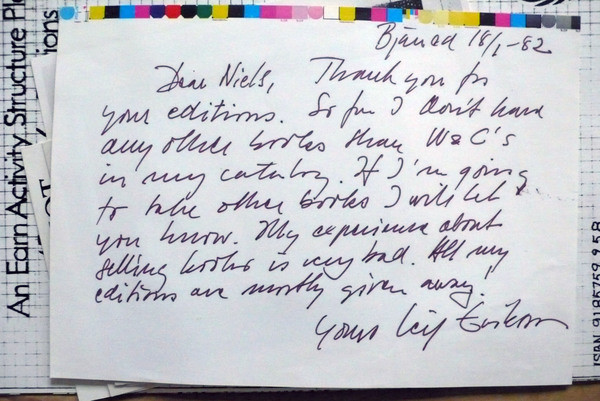 Bjärred 18/1-82
Dear Niels, Thank you for
your editions. So far I don't have
any other books than W&C's
in my catalog. If I'm going
to take other books I will let
you know. My experience about
selling books is very bad. All my
editions are mostly given away.
Yours Leif Eriksson
An Earn Activity Structure Pla
ISBN 9185752 2 5 B